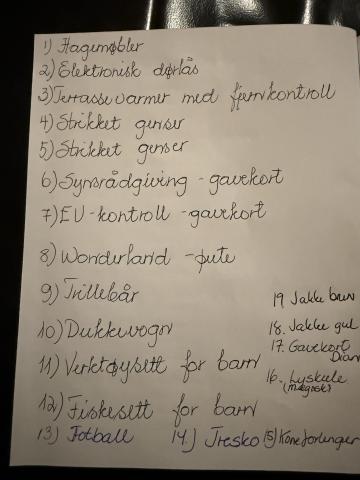 1) Hagemøbler
2) Elektronisk dørlås
3) Terrassevarmer med fjernkontroll
4) Strikket genser
5) Strikket genser
6) Synsrådgiving - gavekort
7) EU-kontroll - gavekort
8) Wonderland - pute
9) Trillebår
10) Dukkevogn
11) Verktøysett for barn
12) Fiskesett for barn
13) Fotball 14.) Tresko 15) Kaneforlenger
16. Lyskule
17. Gavekort
18. Jakke gul
19 Jakke brun